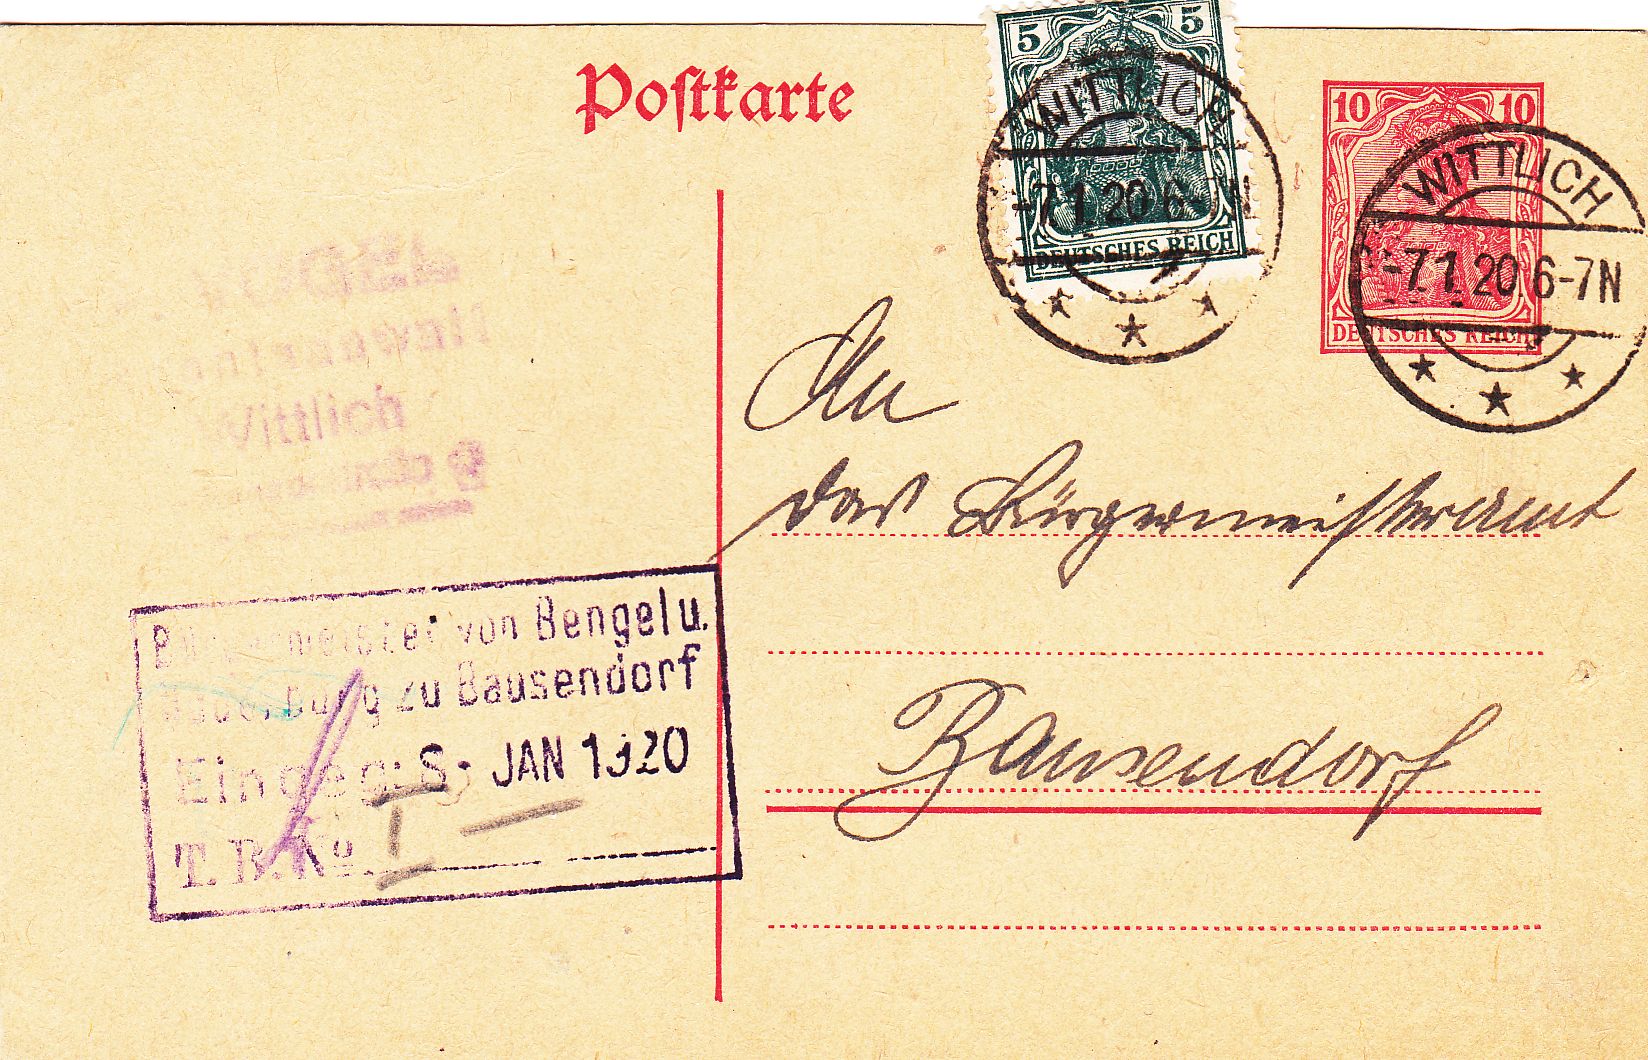 Postkarte
5 5
DEUTSCHES REICH
WITTLICH
-7.1.20.6-7N
10 10
DEUTSCHES REICH
WITTLICH
-7.1.20.6-7N
Wittlich
An
das Bürgermeisteramt
Bausendorf
Bürgermeister von Bengel u.
zu Bausendorf
Eingeg: 8. JAN 1920
T. B. No.
I